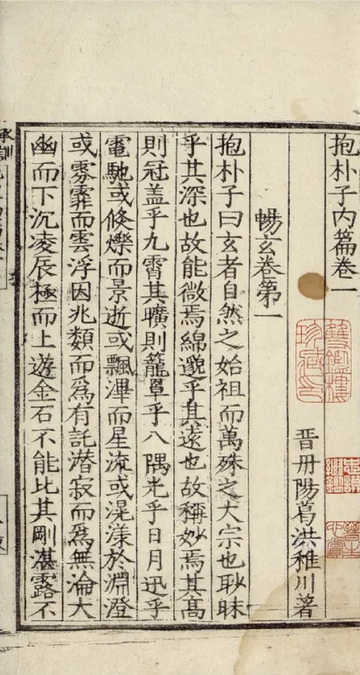 抱朴子内篇卷一
雙鑑樓珍藏印
晋丹陽葛洪稚川著
暢玄卷第一
抱朴子曰玄者自然之始祖而萬殊之大宗也眇昧
乎其深也故能微焉綿邈乎其遠也故稱妙焉其髙
則冠盖乎九霄其曠則籠罩乎八隅光乎日月迅乎
電馳或倏爍而景逝或飄滭而星流或滉漾於淵澄
或雰霏而雲浮因兆類而爲有託潜寂而爲無淪大
幽而下沉凌辰極而上遊金石不能比其剛湛露不